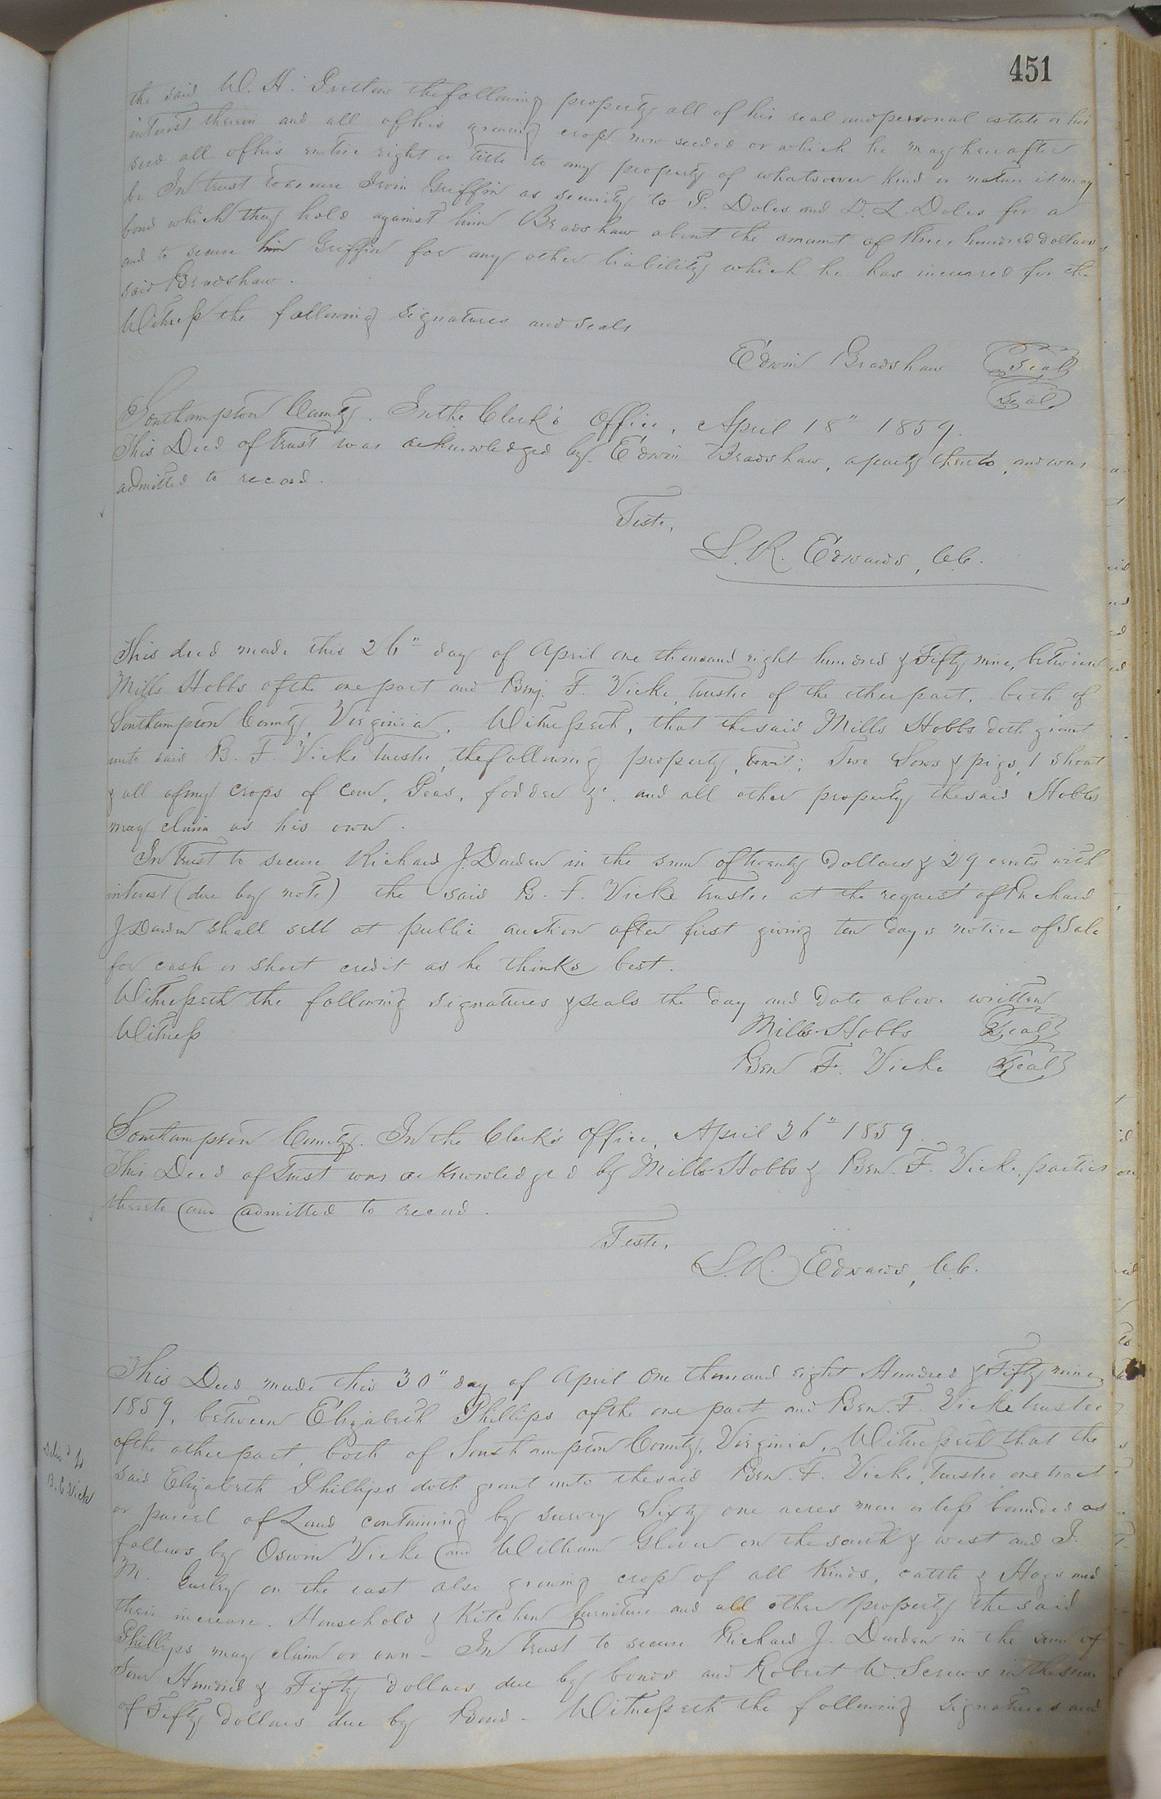 451
the said W. H. the following property all of his real and personal estate or his
interest therein and all of his growing crop now seeded or which he may hereafter
seed all of his entire right or title to any property of whatsoever kind or nature it may
be In trust to secure Irvin Griffin as security to P. Doles and D. L. Doles for a
bond which they hold against him Bradshaw about the amount of three hundred dollars,
and to secure him Griffin for any other liability which he has incurred for the
said Bradshaw.
Witness the following signatures and seals
Edwin Bradshaw Seal
Seal
Southampton County. In the Clerk's Office, April 18" 1859.
This Deed of trust was acknowledged by Edwin Bradshaw, a party thereto, and was
admitted to record.
Teste,
L. R. Edwards, C.C.
This deed made this 26" day of April one thousand eight hundred & Fifty nine, between
Mills Hobbs of the one part and Benj. F. Vicke, trustee of the other part, both of
Southampton County, Virginia, Witnesseth, that the said Mills Hobbs doth grant
unto said B. F. Vicke trustee, the following property, towit; Two Sows & pigs, 1 shoat
& all of my crops of corn, Peas, fodder &c. and all other property the said Hobbs
may claim as his own.
In trust to secure Richard J. Darden in the sum of twenty Dollars & 29 cents with
interest (due by note) the said B. F. Vicke trustee at the request of Richard
J Darden shall sell at public auction after first giving ten days notice of Sale
for cash or short credit as he thinks best.
Witnesseth the following signatures & seals the day and date above written
Witness Mills Hobbs Seal
Ben F. Vicke Seal
Southampton County. In the Clerk's Office, April 26" 1859.
This Deed of Trust was acknowledged by Mills Hobbs & Ben. F. Vicke, parties
thereto and admitted to record.
Teste,
L. R. Edwards, C.C.
This Deed made this 30" day of April One thousand eight Hundred & Fifty nine
1859, between Elizabeth Phillips of the one part and Ben. F. Vicke trustee
of the other part, both of Southampton County, Virginia, Witnesseth that the
said Elizabeth Phillips doth grant unto the said Ben. F. Vicke, trustee one tract
or parcel of Land containing by survey Sixty one acres more or less bounded as
follows by Oswin Vicke and William Glover on the south & west and J.
M. Gurley on the east also growing crop of all Kinds, cattle & Hogs and
their increase, Household & Kitchen furniture and all other property the said
Phillips may claim or own - In trust to secure Richard J. Darden in the sum of
Four Hundred & Fifty dollars due by bonds and Robert W. Screws in the sum
of Fifty dollars due by Bond - Witnesseth the following signatures and